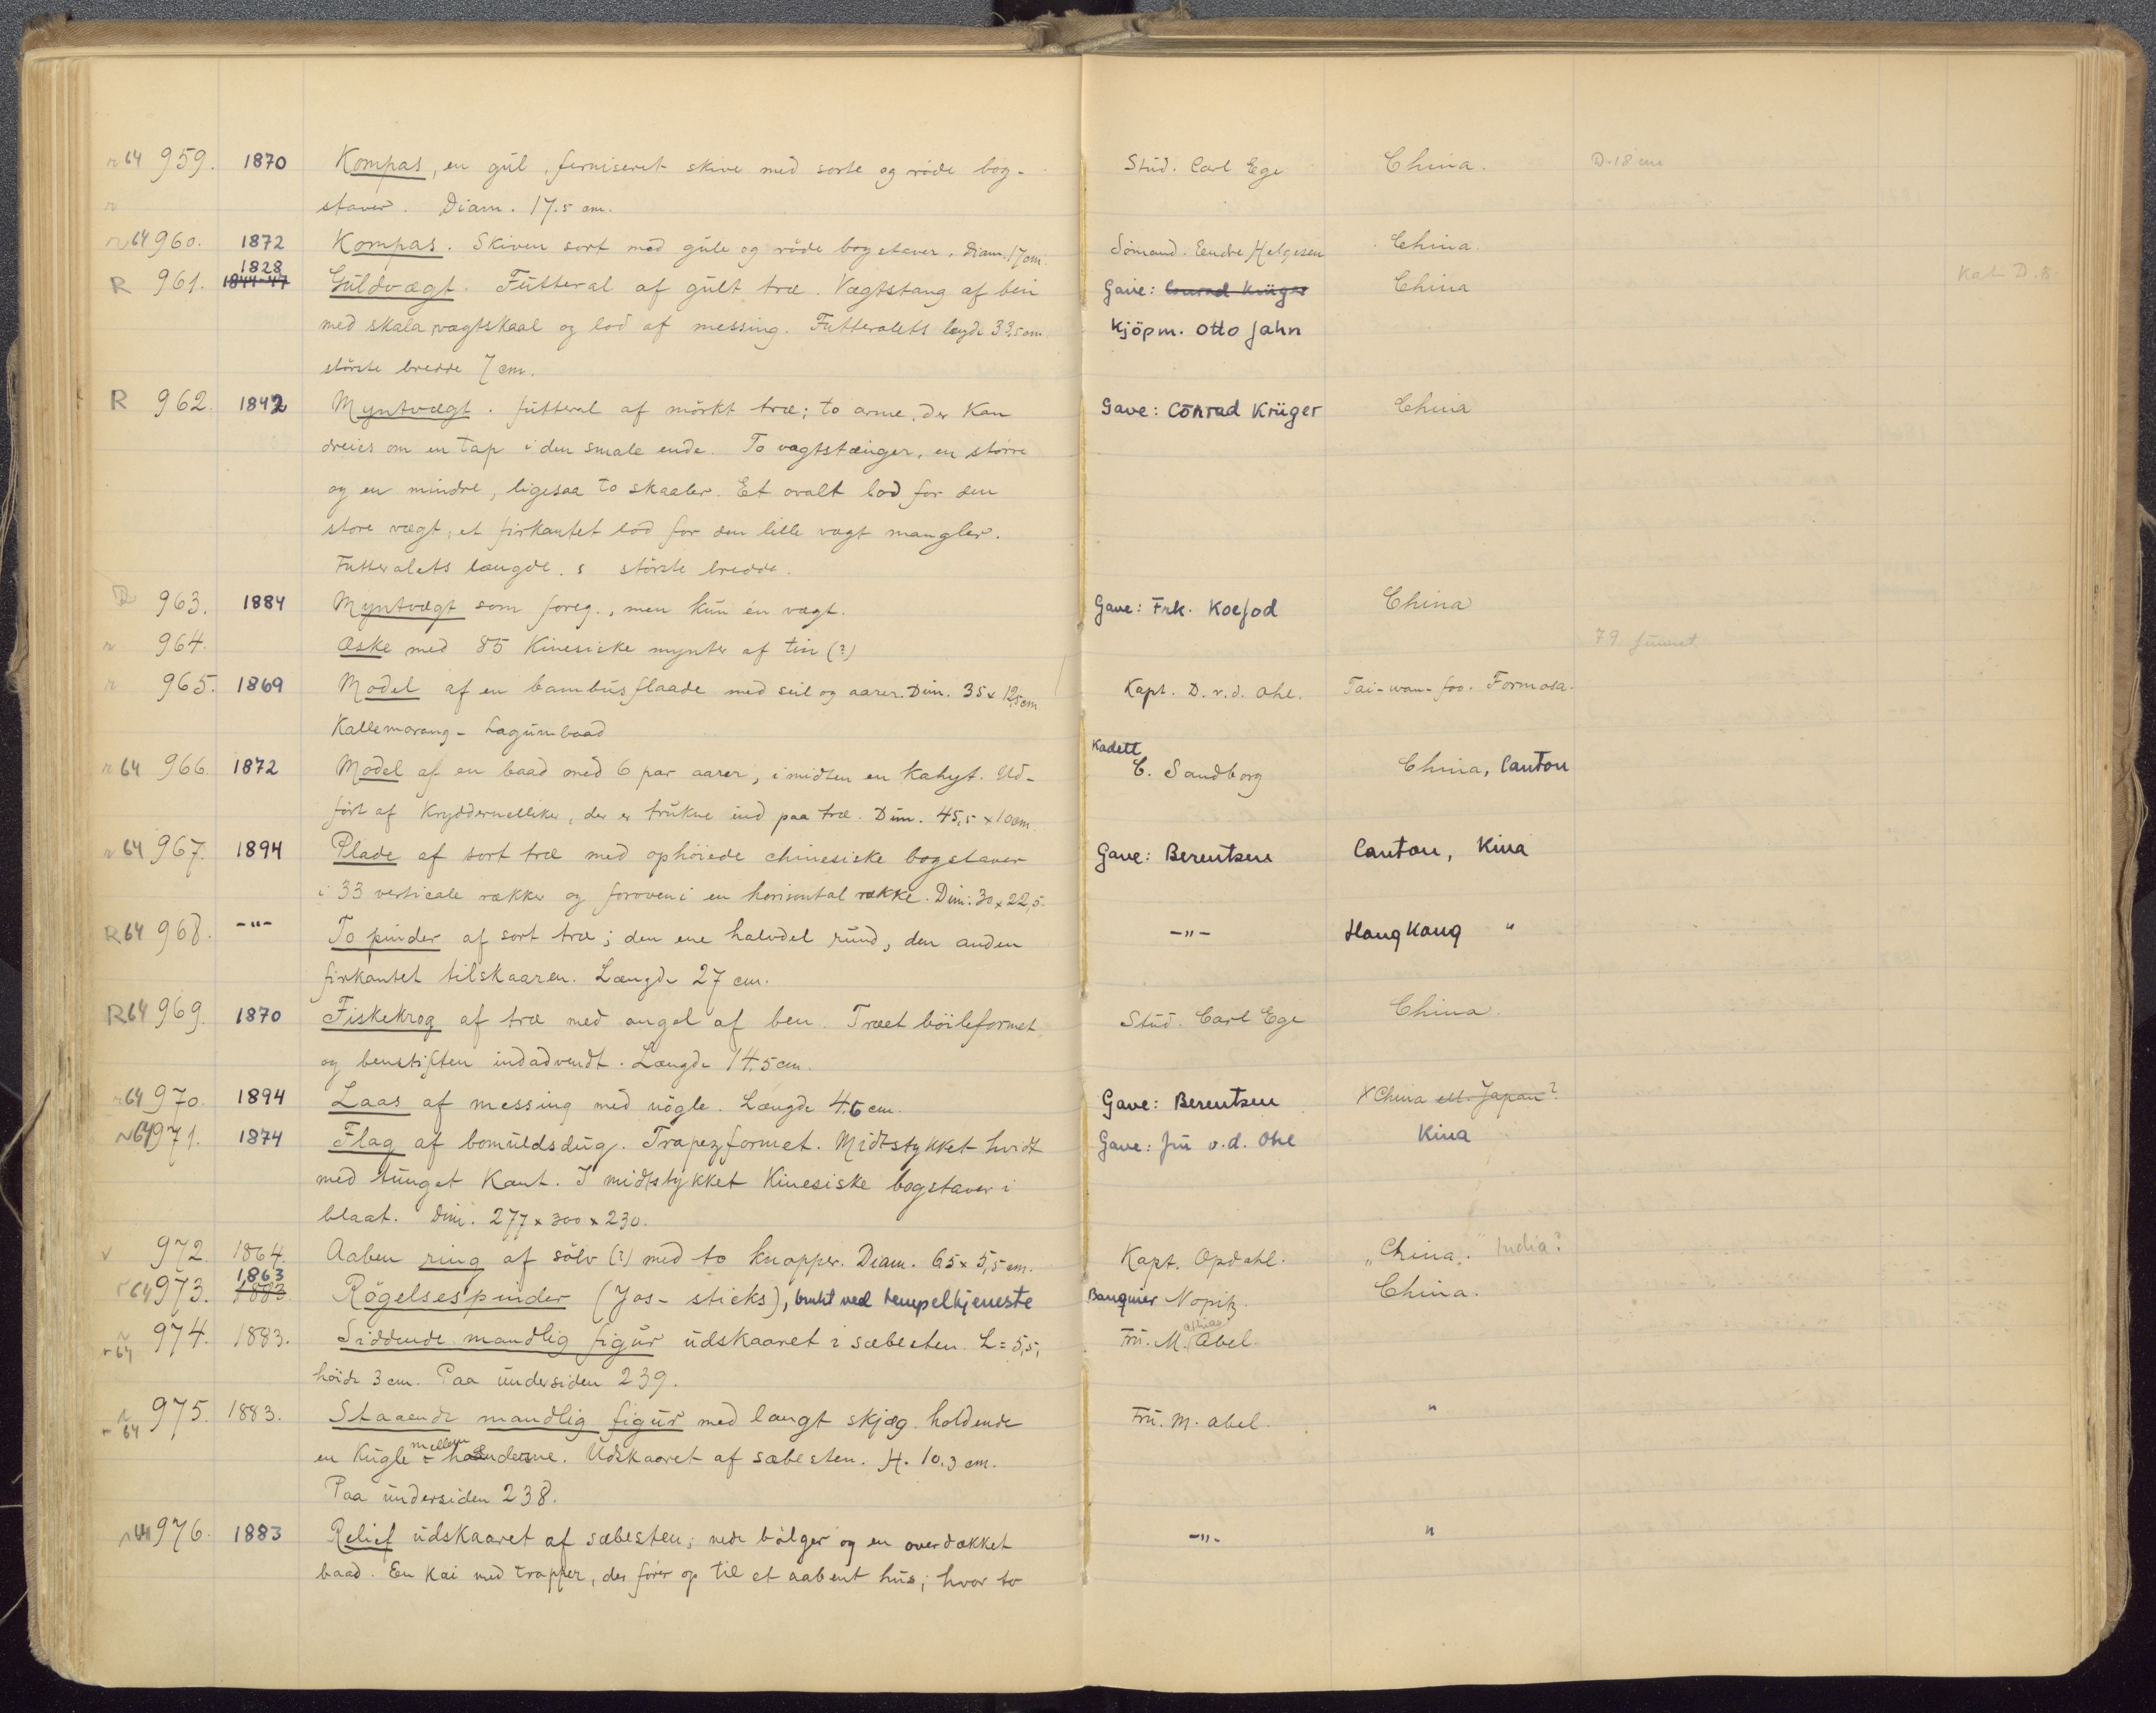 r 64 959. 1870 Kompas, en gul, ferniseret skive med sorte og röde bog- Stud. Carl Ege China. D. 18 cm
r staver. Diam. 17.5 cm.
r 64 960. 1872 Kompas. Skiven sort med gule og röde bogstaver. Diam. 17 cm. Sömand. Eendre Helgesen China.
R 961. 1828 1844-47 Guldvægt. Futteral af gult træ. Vægtstang af ben Gave: Conrad Krüger China Kat. D. 8.
med skala, vægtskaal og lod af messing. Futteralets lægde 33,5 cm. Kjöpm. Otto Jahn
störste bredde 7 cm.
R 962. 1842 Myntvægt. Futteral af mörkt træ; to arme, der kan Gave: Conrad Krüger China
dreies om en tap i den smale ende. To vægtstænger, en större
og en mindre, ligesaa to skaaler. Et ovalt lod for den
store vægt, et firkantet lod for den lille vægt mangler.
Futteralets længde. s störste bredde.
R 963. 1884 Myntvægt som foreg., men kun én vægt. Gave: Frk. Koefod China
r 964. Æske med 85 Kinesiske mynter af tin (?) 79 funnet
r 965. 1869 Model af en bambusflaade med seil og aarer. Dim. 35 x 12,5 cm Kapt. D. v. d. Ohe. Tai-wan-foo. Formosa.
Kallemarang - Lagunbaad
r 64 966. 1872 Model af en baad med 6 par aarer, i midten en kahyt. Ud- Kadett C. Sandborg China, Canton
fört af Kryddernelliker, der er trukne ind paa træ. Dim. 45,5 x 10 cm.
r 64 967. 1894 Plade af sort træ med ophöiede chinesiske bogstaver Gave: Berentzen Canton, Kina
i 33 verticale rækker og foroven i en horisontal række. Dim: 30 x 22,5.
R 64 968. -"- To pinder af sort træ; den ene halvdel rund, den anden -"- Hong Kong "
firkantet tilskaaren. Længde 27 cm.
R 64 969. 1870 Fiskekrog af træ med angel af ben. Træet böileformet Stud. Carl Ege China.
og benstiften indadvendt. Længde 14.5 cm.
r 64 970. 1894 Laas af messing med nögle. Længde 4.6 cm. Gave: Berentzen X China ell. Japan?
r 64 971. 1874 Flag af bomuldsdug. Trapezformet. Midtstykket hvidt Gave: Fru v.d. Ohe Kina
med tunget Kant. I midtstykket Kinesiske bogstaver i
blaat. Dim. 277 x 300 x 230.
v 972 1864. Aaben ring af sölv (?) med to knopper. Diam. 6.5 x 5,5 cm. Kapt. Opdahl. "China." India?
r 64 973. 1863 1883 Rögelsespinder (Jos-sticks), brukt ved tempeltjeneste Banquier Nopitz. China.
r 64 974. 1883. Siddende mandlig figur udskaaret i sæbesten. L = 5,5, Fru. M. Abel.
höide 3 cm. Paa undersiden 239.
r 64 975. 1883. Staaende mandlig figur med langt skjæg holdende Fru. M. Abel. "
en Kugle mellem hænderne. Udskaaret af sæbesten. H. 10.3 cm.
Paa undersiden 238.
r 64 976. 1883 Relief udskaaret af sæbesten; nede bölger og en overdækket -"- "
baad. En Kai med trapper, der förer op til et aabent hus; hvor to